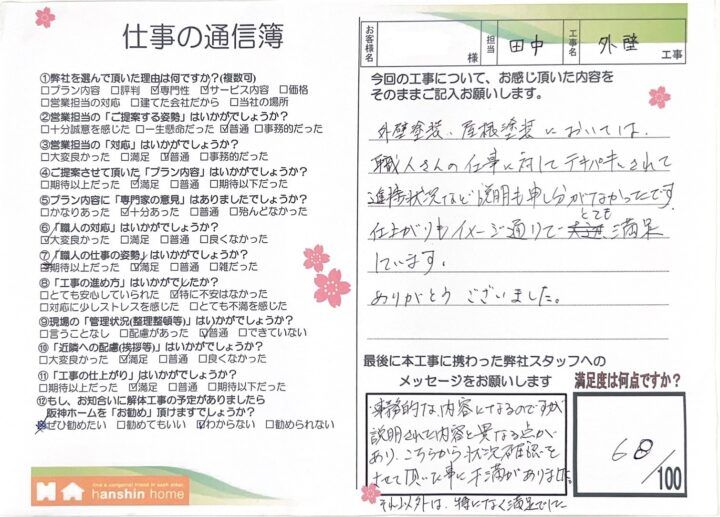 仕事の通信簿
①弊社を選んで頂いた理由は何ですか?(複数可)
□プラン内容 □評判 ☑専門性 ☑サービス内容 □価格
□営業担当の対応 □建てた会社だから □当社の場所
②営業担当の「ご提案する姿勢」はいかがでしょうか?
□十分誠意を感じた □一生懸命だった ☑普通 □事務的だった
③営業担当の「対応」はいかがでしょうか?
□大変良かった □満足 ☑普通 □事務的だった
④ご提案させて頂いた「プラン内容」はいかがでしょうか?
□期待以上だった ☑満足 □普通 □期待以下だった
⑤プラン内容に「専門家の意見」はありましたでしょうか?
□かなりあった ☑十分あった □普通 □殆んどなかった
⑥「職人の対応」はいかがでしょうか?
☑大変良かった □満足 □普通 □良くなかった
⑦「職人の仕事の姿勢」はいかがでしょうか?
□期待以上だった ☑満足 □普通 □雑だった
⑧「工事の進め方」はいかがでしたか?
□とても安心していられた ☑特に不安はなかった
□対応に少しストレスを感じた □とても不満を感じた
⑨現場の「管理状況(整理整頓等)」はいかがでしょうか?
□言うことなし □配慮があった ☑普通 □できていない
⑩「近隣への配慮(挨拶等)」はいかがでしょうか?
□大変良かった ☑満足 □普通 □良くなかった
⑪「工事の仕上がり」はいかがでしょうか?
□期待以上だった ☑満足 □普通 □期待以下だった
⑫もし、お知合いに解体工事の予定がありましたら
阪神ホームを「お勧め」頂けますでしょうか?
□ぜひ勧めたい □勧めてもいい ☑わからない □勧められない
hanshin home
お客様名 様 担当 田中 工事名 外壁 工事
今回の工事について、お感じ頂いた内容を
そのままご記入お願いします。
外壁塗装、屋根塗装においては、
職人さんの仕事に対してテキパキとされて
進捗状況など説明も申し分がなかったです。
仕上がりもイメージ通りでとても満足
しています。
ありがとうございました。
最後に本工事に携わった弊社スタッフへの
メッセージをお願いします
事務的な内容になるのですが
説明された内容と異なる点が
あり、こちらから状況確認を
させて頂いた事に不満がありました。
それ以外は、特になく満足でした
満足度は何点ですか?
68
/100